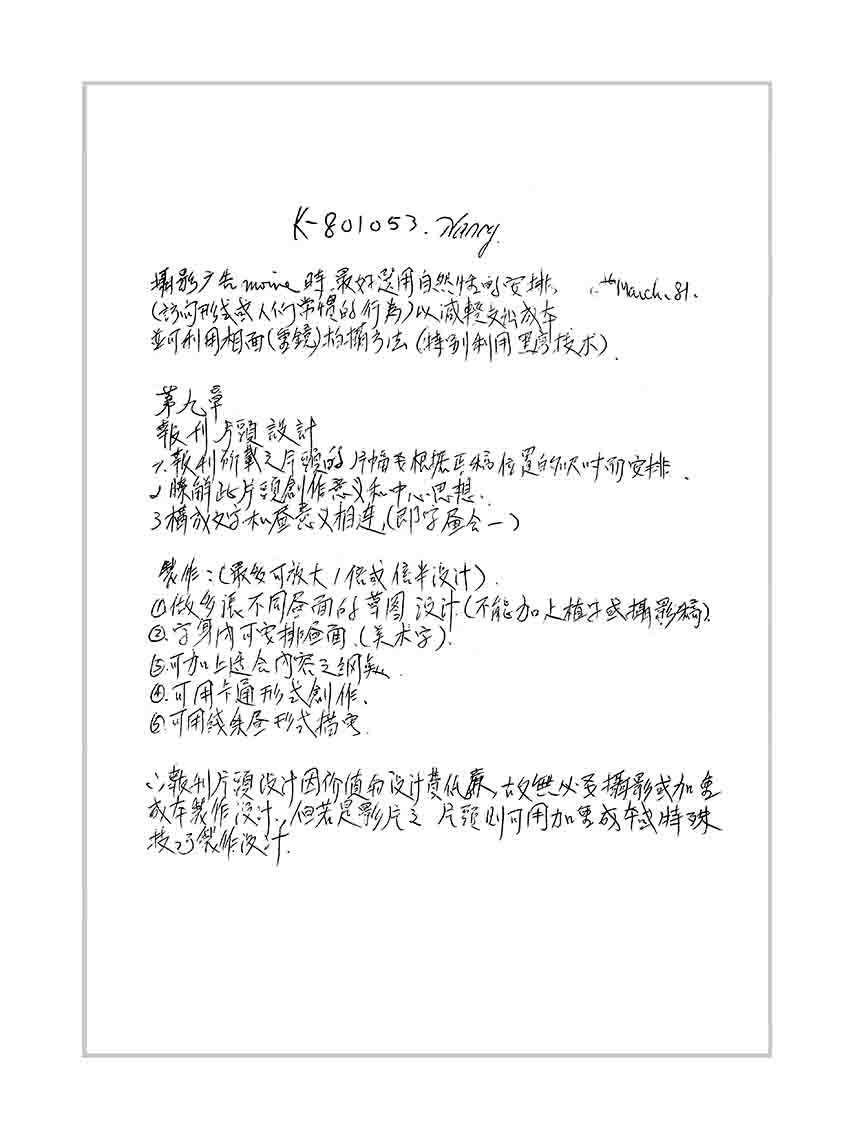 K-801053. Nancy.
攝影廣告movie時、最好選用自然性的安排、 March. 81.
(訪问形式或人们常慣的行為)以減輕支出成本
並可利用相面(重鏡)拍攝方法(特别利用黑房技术).
第九章
報刊片頭設計
1.報刊所載之片頭的片幅要根据正稿位置的尺吋而安排.
2 瞭解此片頭創作意义和中心思想.
3 構成文字和昼意义相连,(即字昼合一)
製作:(最多可放大1倍或倍半设计).
①做多張不同昼面的草图设计(不能加上植字或攝影稿).
②.字身内可安排昼面.(美术字).
③.可加上适合内容之網氣.
④.可用卡通形式創作.
⑤.可用线条昼形式描寫.
∴報刊片頭设计因价值的设计費低廉、故無必要攝影或加重
成本製作设计.但若是影片之 片頭则可用加重成本或特殊
技巧製作设计.